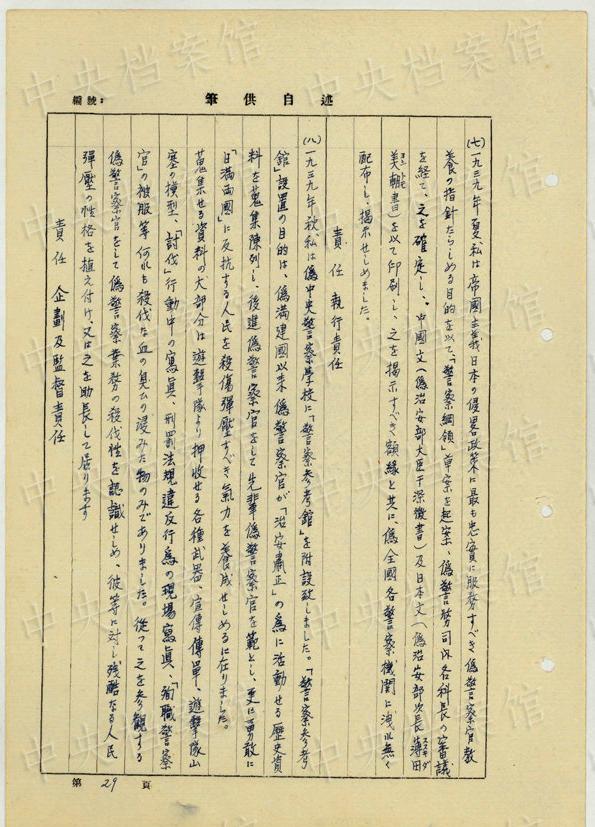 編號：
筆供自述
(七)一九三九年夏、私は帝國主義日本の侵畧政策に最も忠實に服務すべき偽警察官教
養の指針たらしめる目的を以て、「警察綱領」草案を起案、偽警務司内各科長の審議
を経て、之を確定し、中國文(偽治安部大臣于深澂書)及日本文(偽治安部次長薄田
ススキダ
美朝書)を以て印刷し、之を掲示すべき額縁と共に、偽全國各警察機関に洩れ無く
配布し、掲示せしめました。
責任 執行責任
(八)一九三九年秋、私は偽中央警察學校に「警察参考館」を附設致しました。「警察参考
館」設置の目的は、偽満建國以来偽警察官が「治安肅正」の為に活動せる歴史資
料を蒐集陳列し、後進偽警察官をして先輩偽警察官を範とし、更に勇敢に
「日満両國」に反抗する人民を殺傷彈壓すべき氣力を養成せしめるに在りました。
蒐集せる資料の大部分は遊撃隊より押收せる各種武器、宣傳傳單、遊撃隊山
塞の模型、「討伐」行動中の寫真、刑罰法規違反行為の現場寫真、「殉職警察
官」の被服等何れも殺伐な血の臭ひの浸みた物のみでありました。従つて之を参観する
偽警察官をして偽警察業務の殺伐性を認識せしめ、彼等に対し残酷なる人民
彈壓の性格を植え付け又は之を助長して居ります
責任 企劃及監督責任
第29頁
中央档案馆